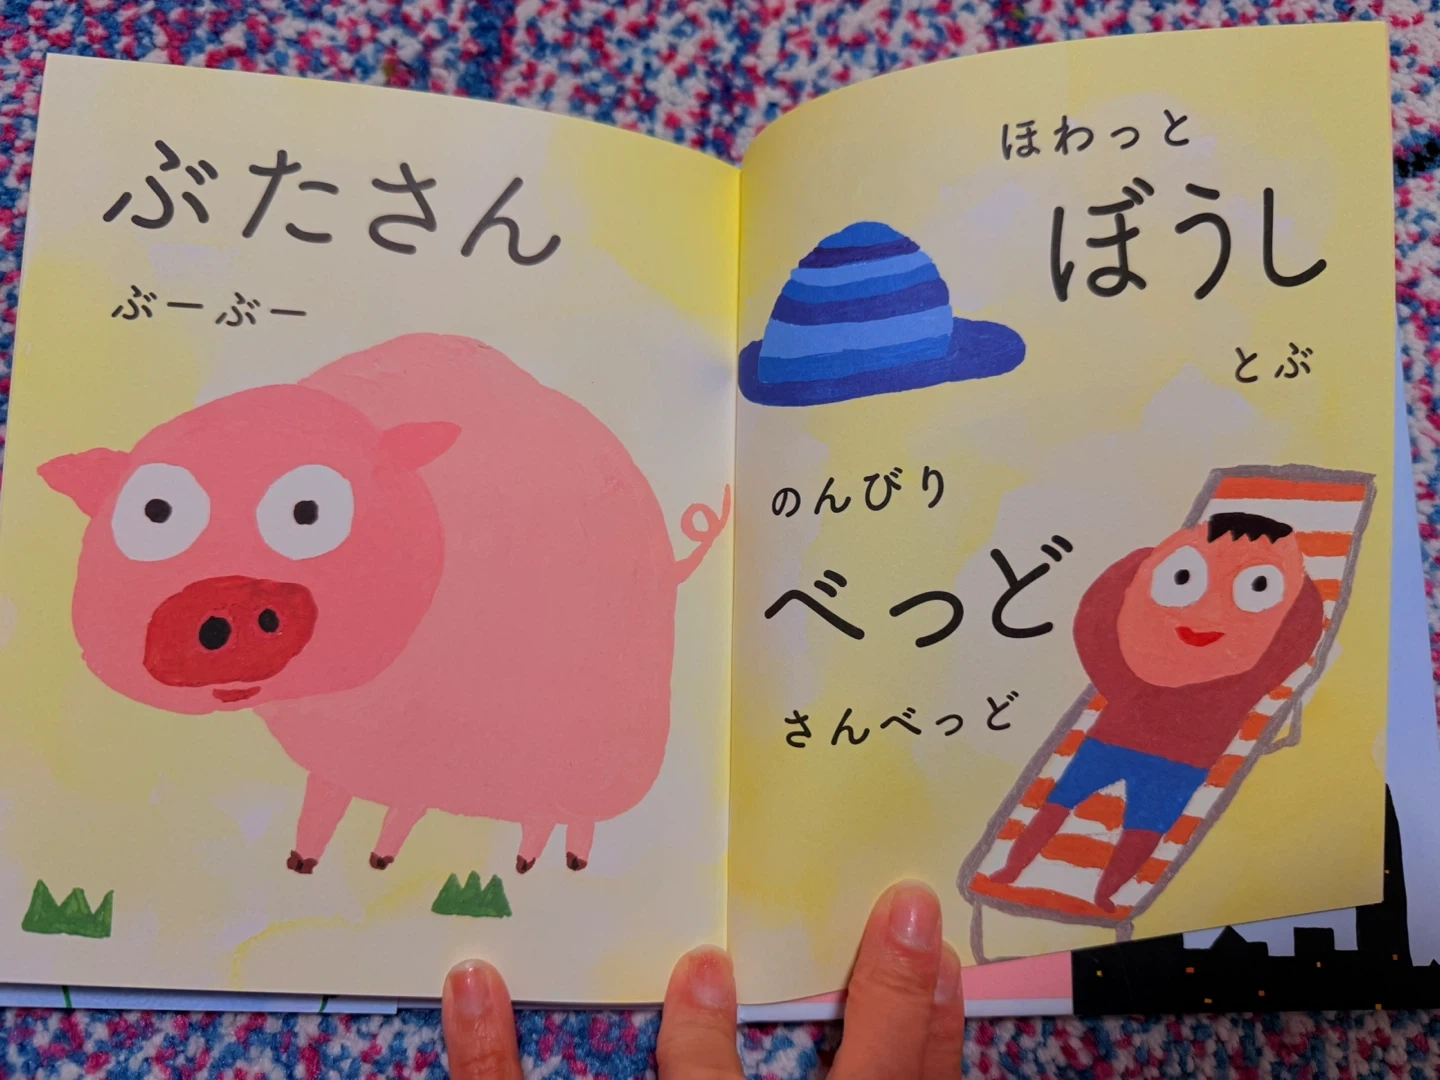 ぶたさん
ぶーぶー
ほわっと
ぼうし
とぶ
のんびり
べっど
さんべっど